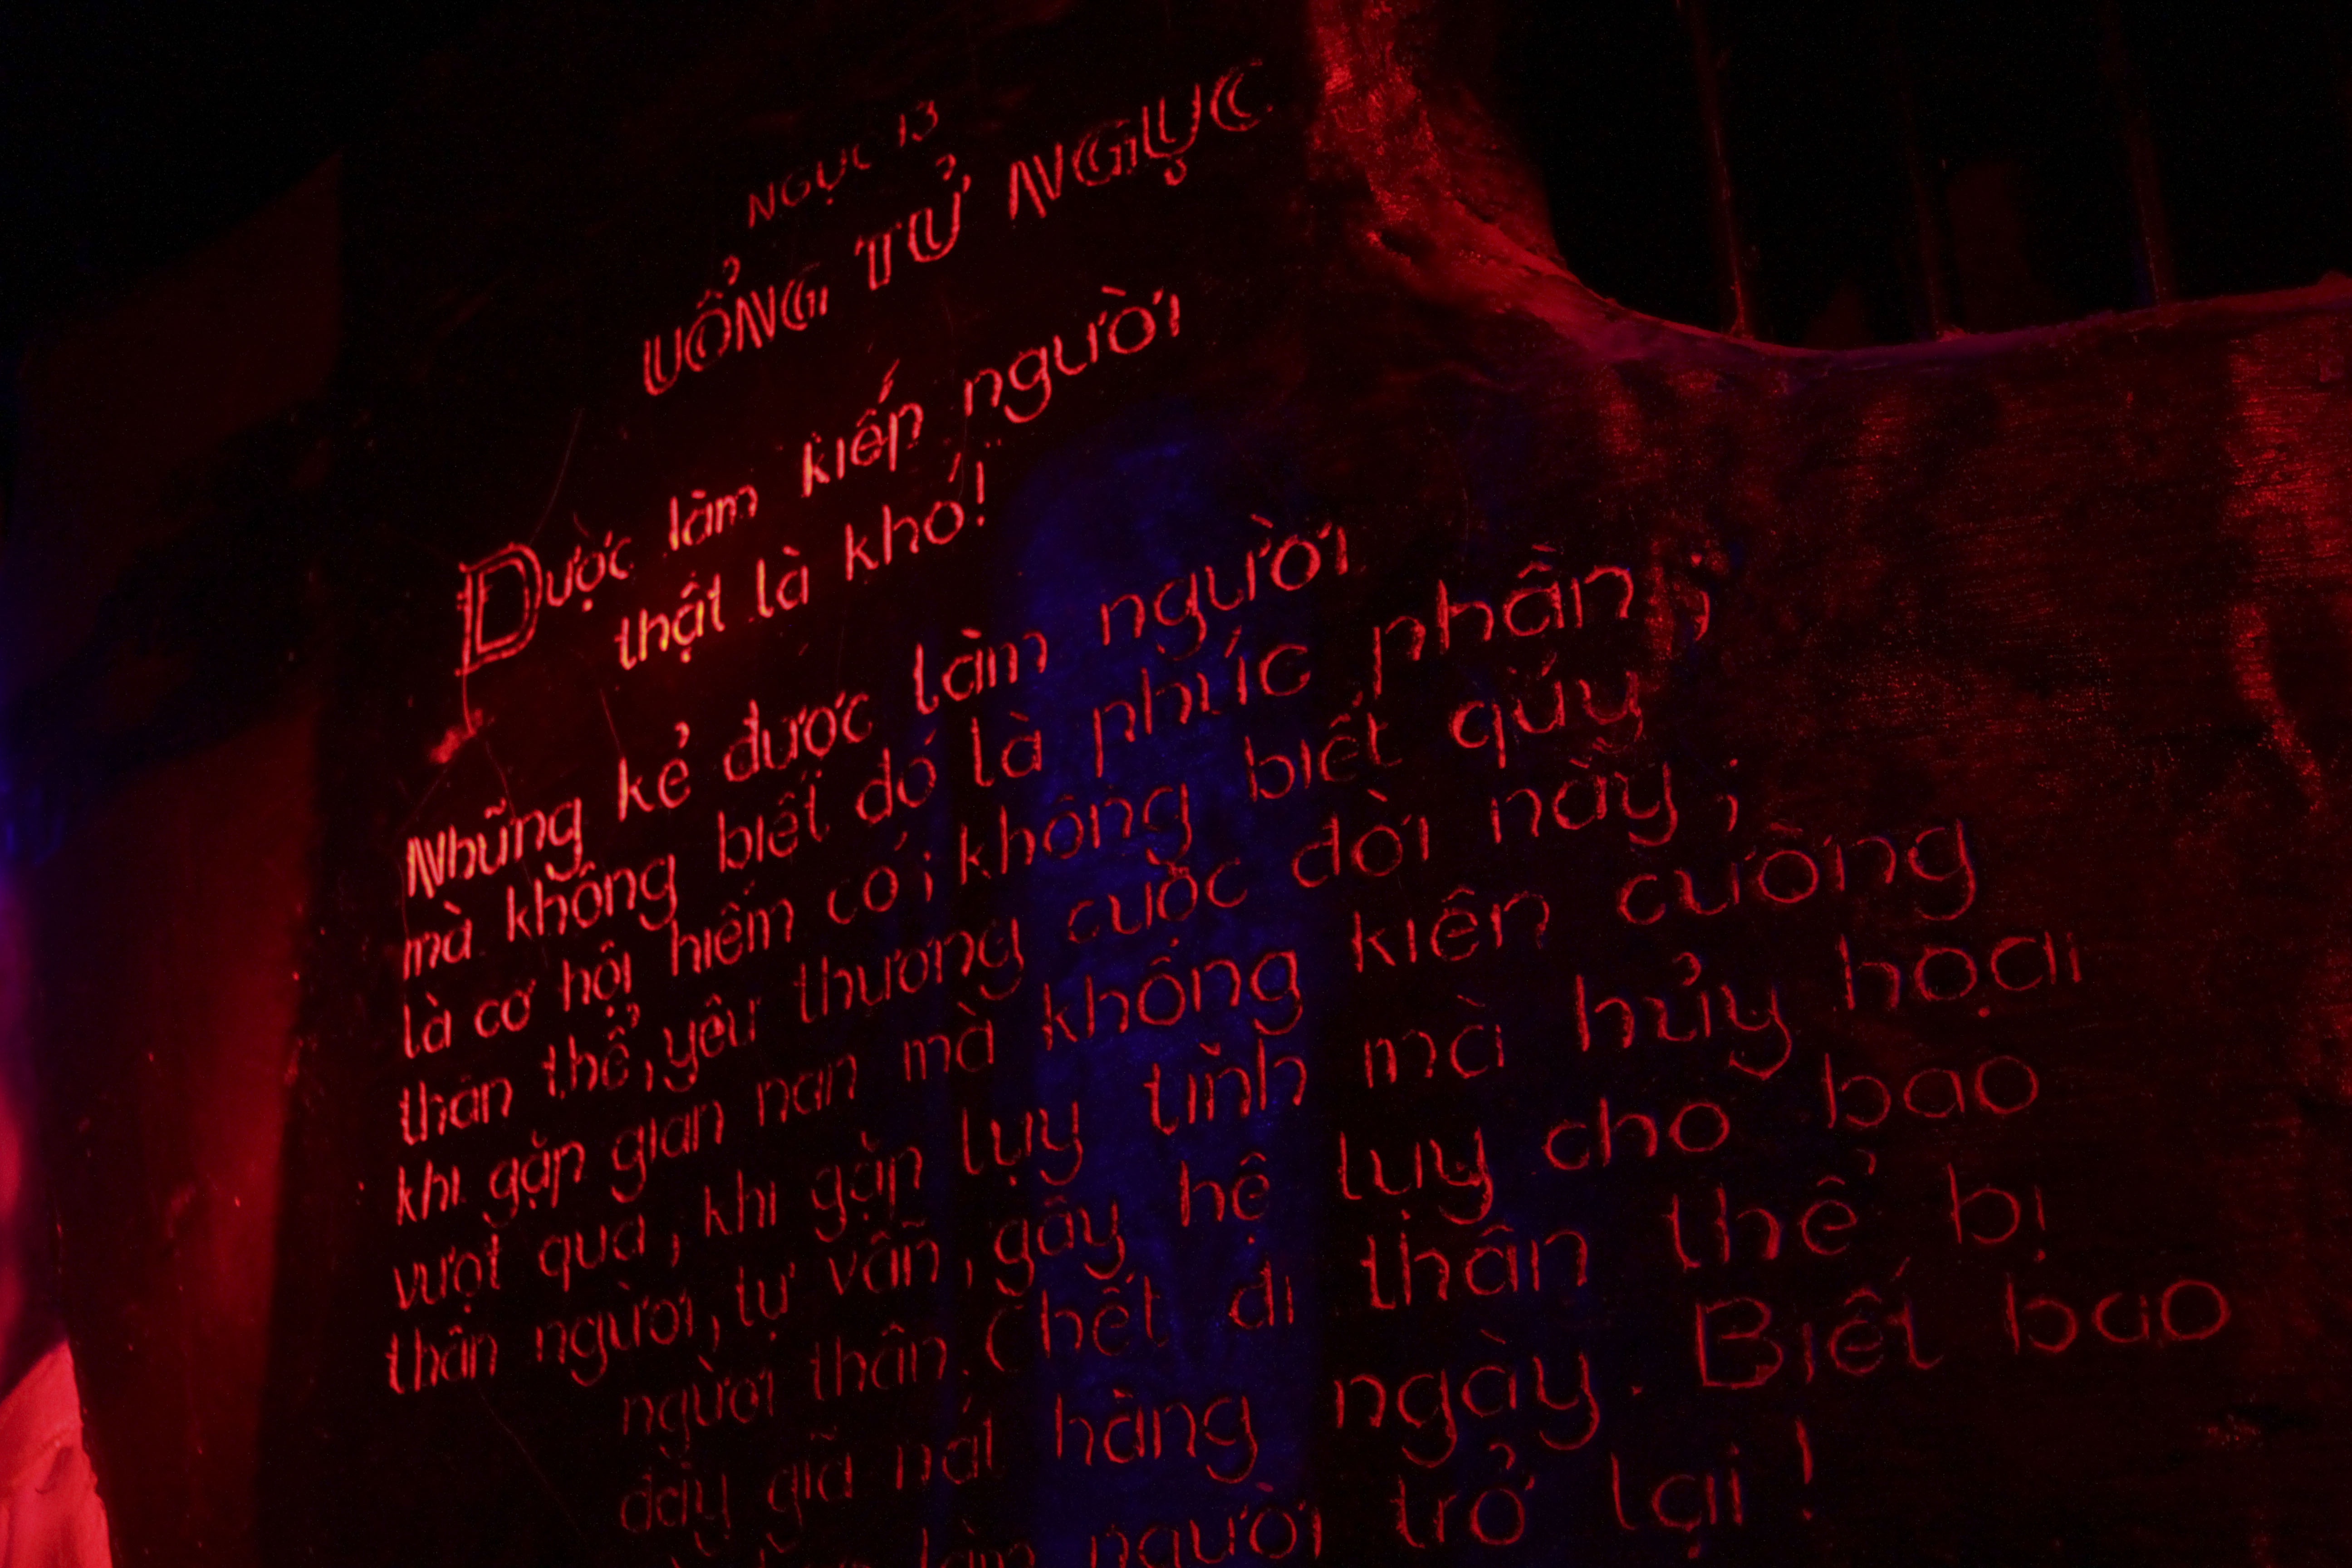 NGỤC 13
UỔNG TỬ NGỤC
Được làm kiếp người
thật là khó!
Những kẻ được làm người
mà không biết đó là phúc phần;
là cơ hội hiếm có; không biết qúy
thân thể, yêu thương cuộc đời này;
khi gặp gian nan mà không kiên cường
vượt qua, khi gặp lụy tình mà hủy họai
thân người, tự vẫn, gây hệ lụy cho bao
người thân. Chết đi thân thể bị
đày giã nát hàng ngày. Biết bao
làm người trở lại!